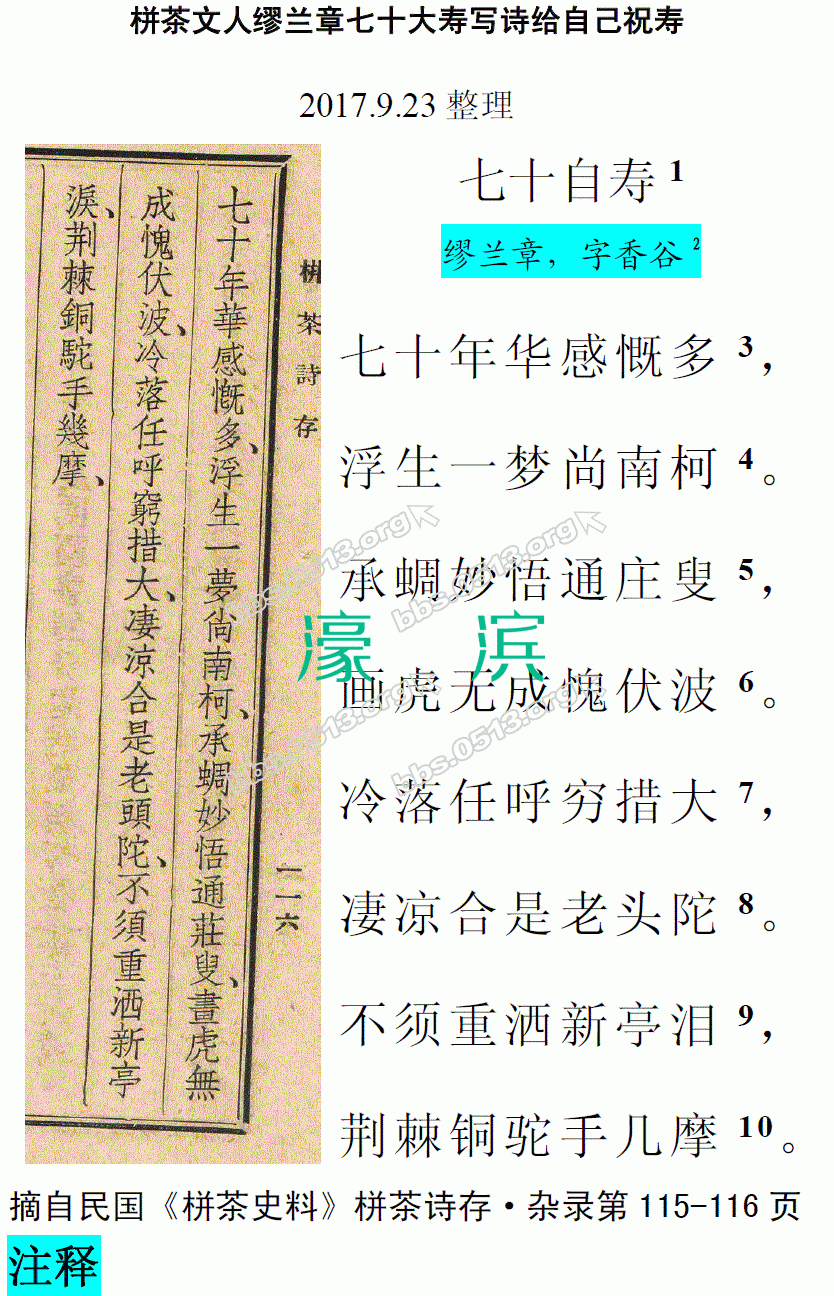 栟茶文人缪兰章七十大寿写诗给自己祝寿
2017.9.23 整理
七十年華感慨多、浮生一夢尙南柯、承蜩妙悟通莊叟、畫虎無
成愧伏波、冷落任呼窮措大、凄涼合是老頭陀、不須重洒新亭
淚、荆棘銅駝手幾摩、
栟茶詩存
一一六
七十自寿1
缪兰章，字香谷2
七十年华感慨多3，
浮生一梦尚南柯4。
承蜩妙悟通庄叟5，
画虎无成愧伏波6。
冷落任呼穷措大7，
凄凉合是老头陀8。
不须重洒新亭泪9，
荆棘铜驼手几摩10。
濠滨
bbs.0513.org
bbs.0513.org
bbs.0513.org
bbs.0513.org
摘自民国《栟茶史料》栟茶诗存·杂录第 115-116 页
注释